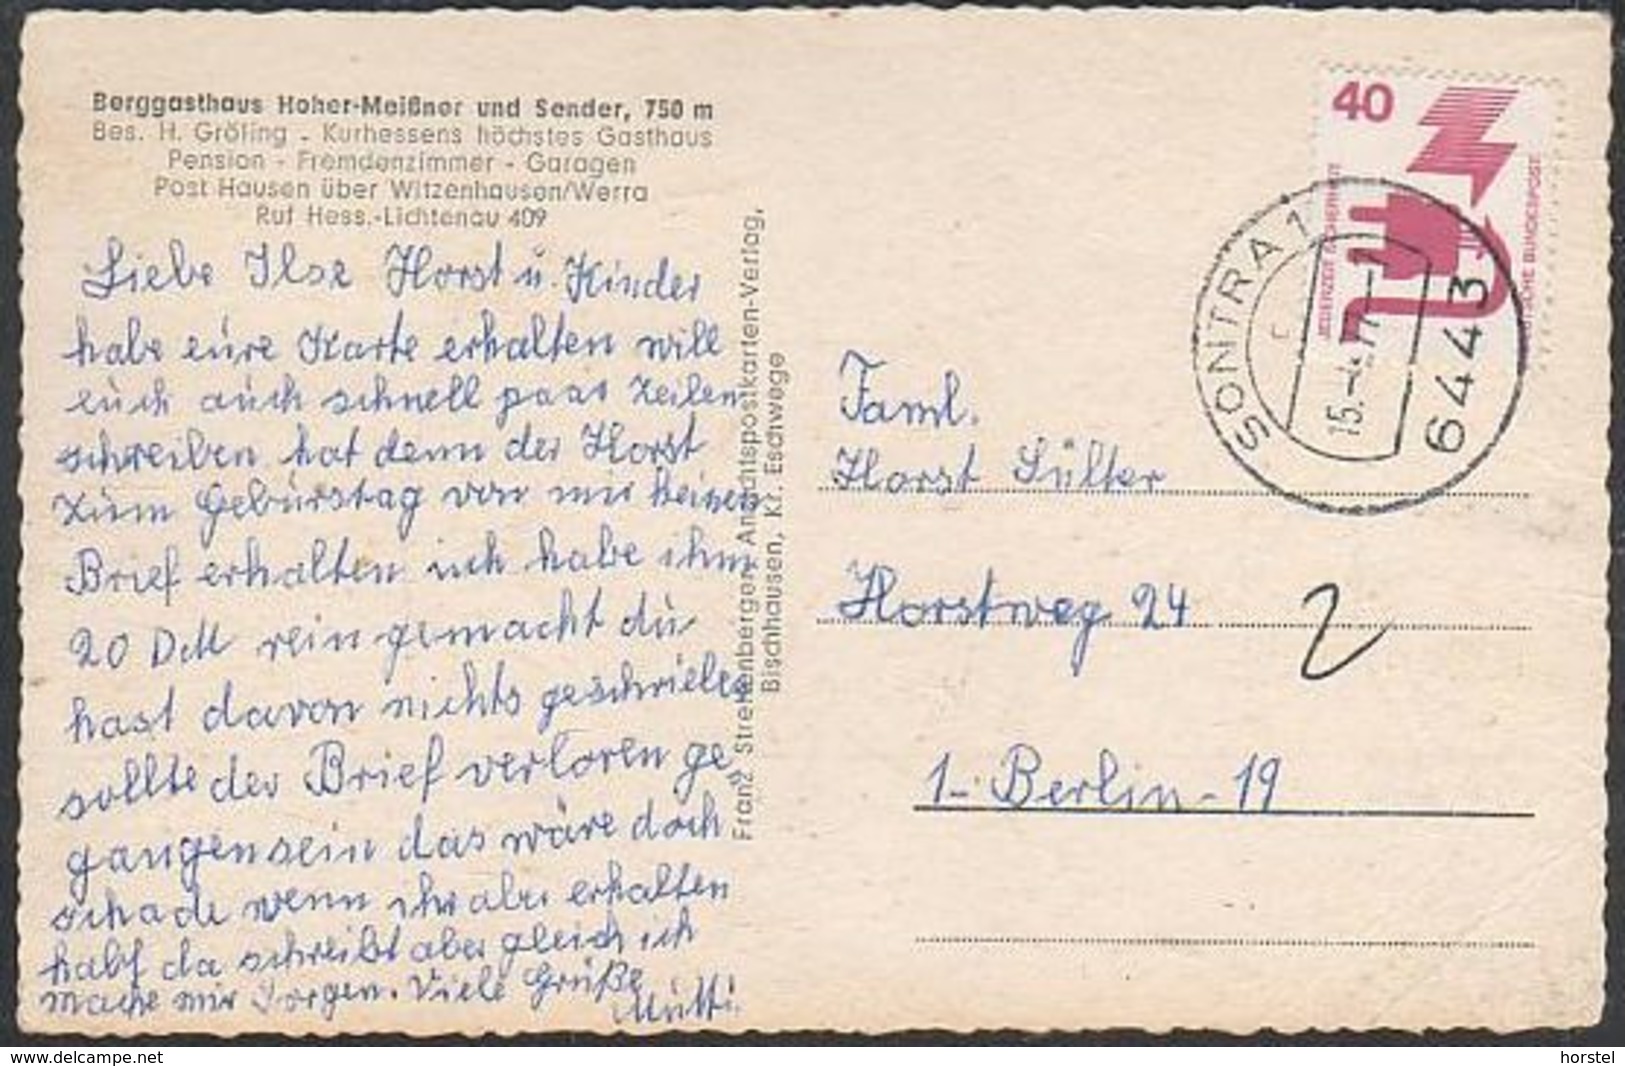 Berggasthaus Hoher-Meißner und Sender, 750 m
Bes. H. Gröling - Kurhessens höchstes Gasthaus
Pension - Fremdenzimmer - Garagen
Post Hausen über Witzenhausen/Werra
Ruf Hess.-Lichtenau 409
Liebe Ilse Horst u. Kinder
habe eure Karte erhalten will
euch auch schnell paar Zeilen
schreiben hat denn der Horst
zum Geburstag von mir keinen
Brief erhalten ich habe ihm
20 DM rein gemacht du
hast davon nichts geschrieben
sollte der Brief verloren ge
gangen sein das wäre doch
schade wenn ihr aber erhalten
habt da schreibt aber gleich ich
mache mir Sorgen. Viele Grüße
Mutti
Franz Ansichtspostkarten-Verlag,
Bischhausen, Kr. Eschwege
40
JEDERZEIT SICHERHEIT
DEUTSCHE BUNDESPOST
SONTRA 1
15.-4.77
6443
Faml.
Horst Sülter
Horstweg 24
2
1-Berlin-19
delcampe.net
horstel